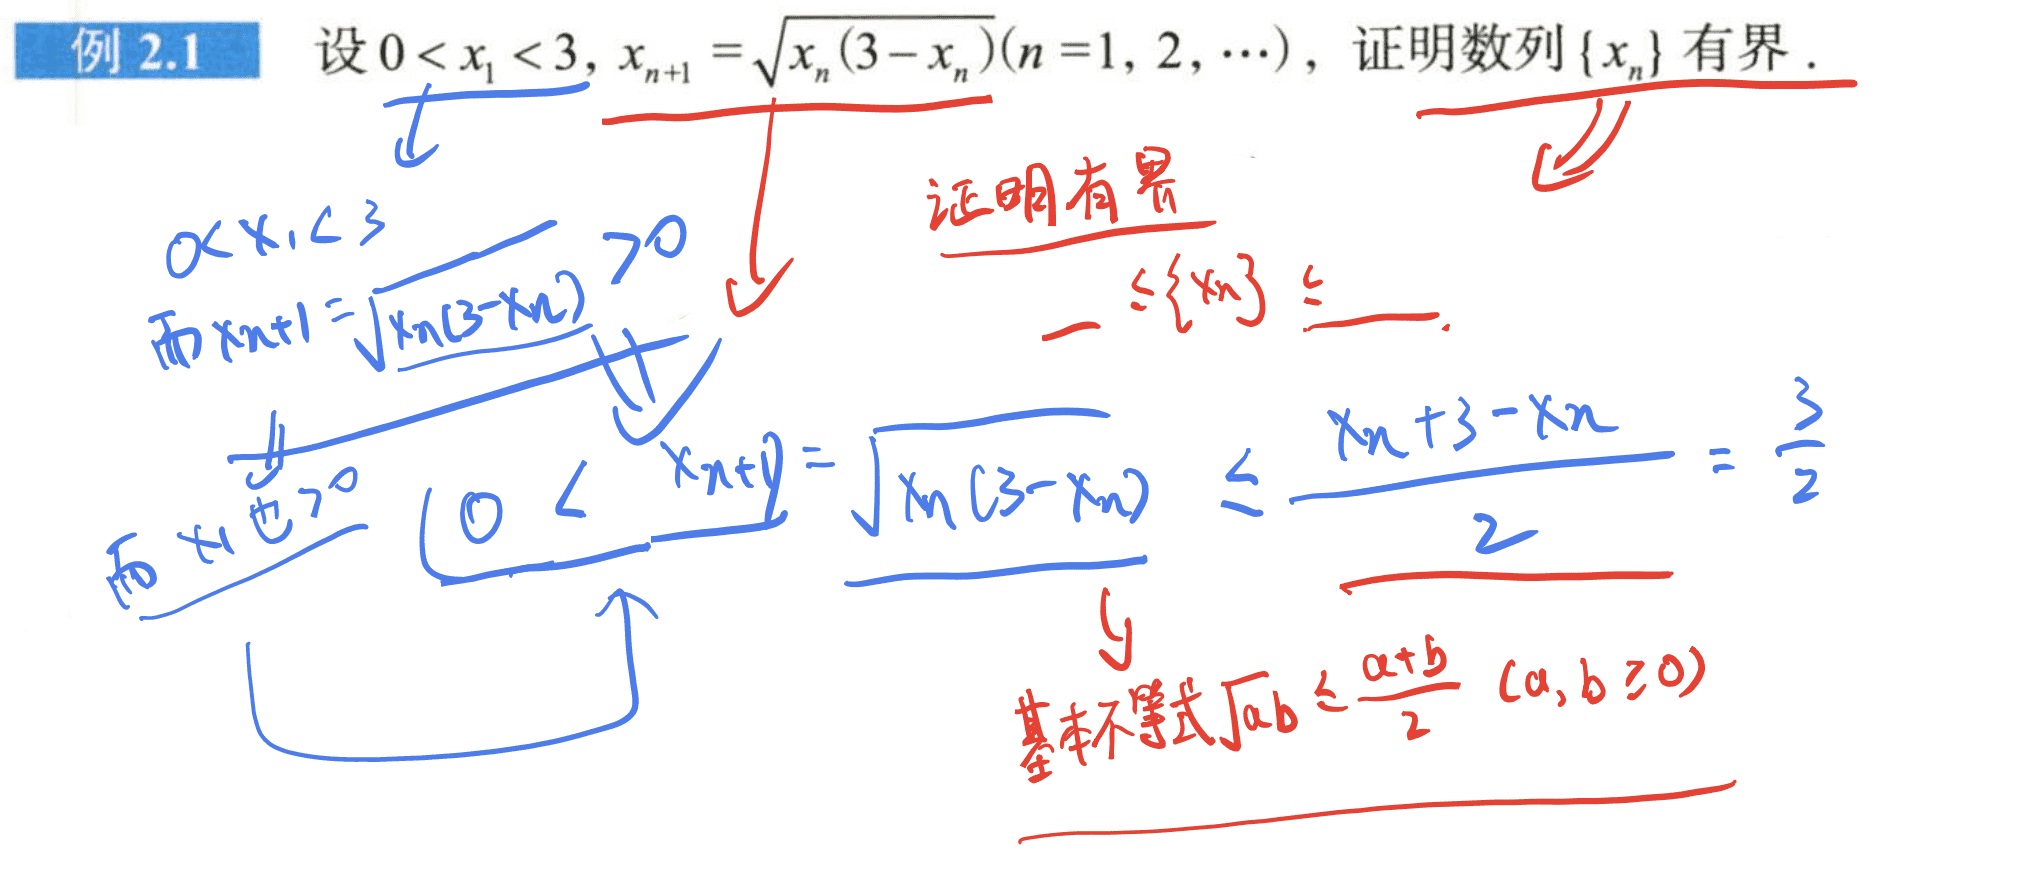 例 2.1 设 0 < x₁ < 3, xₙ₊₁ = √(xₙ(3 − xₙ)) (n = 1, 2, ⋯), 证明数列 {xₙ} 有界.
证明有界
≤ {xₙ} ≤
0 < x₁ < 3
而 xₙ₊₁ = √(xₙ(3 − xₙ)) > 0
而 x₁ 也 > 0
0 < xₙ₊₁ = √(xₙ(3 − xₙ)) ≤ (xₙ + 3 − xₙ)/2 = 3/2
基本不等式 √ab ≤ (a+b)/2 (a, b ≥ 0)